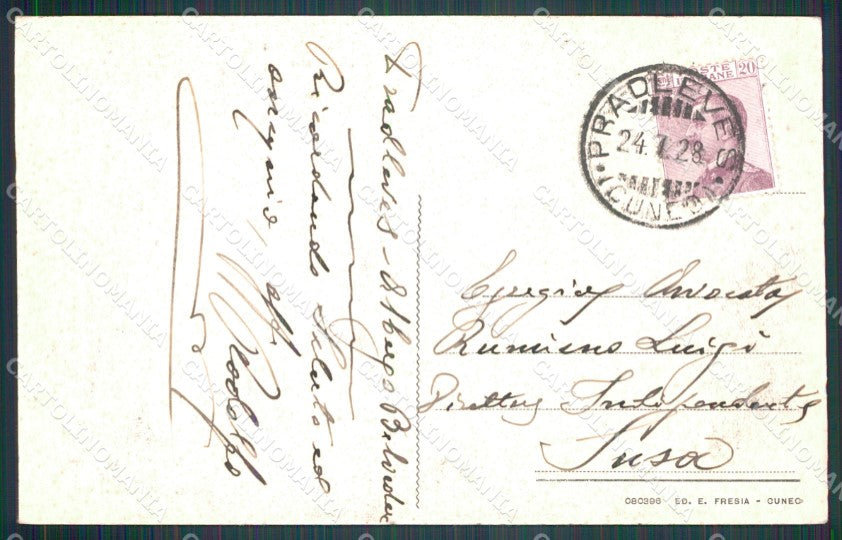 Pradleves - Albergo Belvedere
Ricordando saluto ed
ossequio, aff
Rodolfo
POSTE 20
ITALIANE
PRADLEVES
24.7.28
(CUNEO)
Egregio Avvocato
Rumiano Luigi
Direttore Indipendente
Susa
080396 ED. E. FRESIA - CUNEO
CARTOLINOMANIA